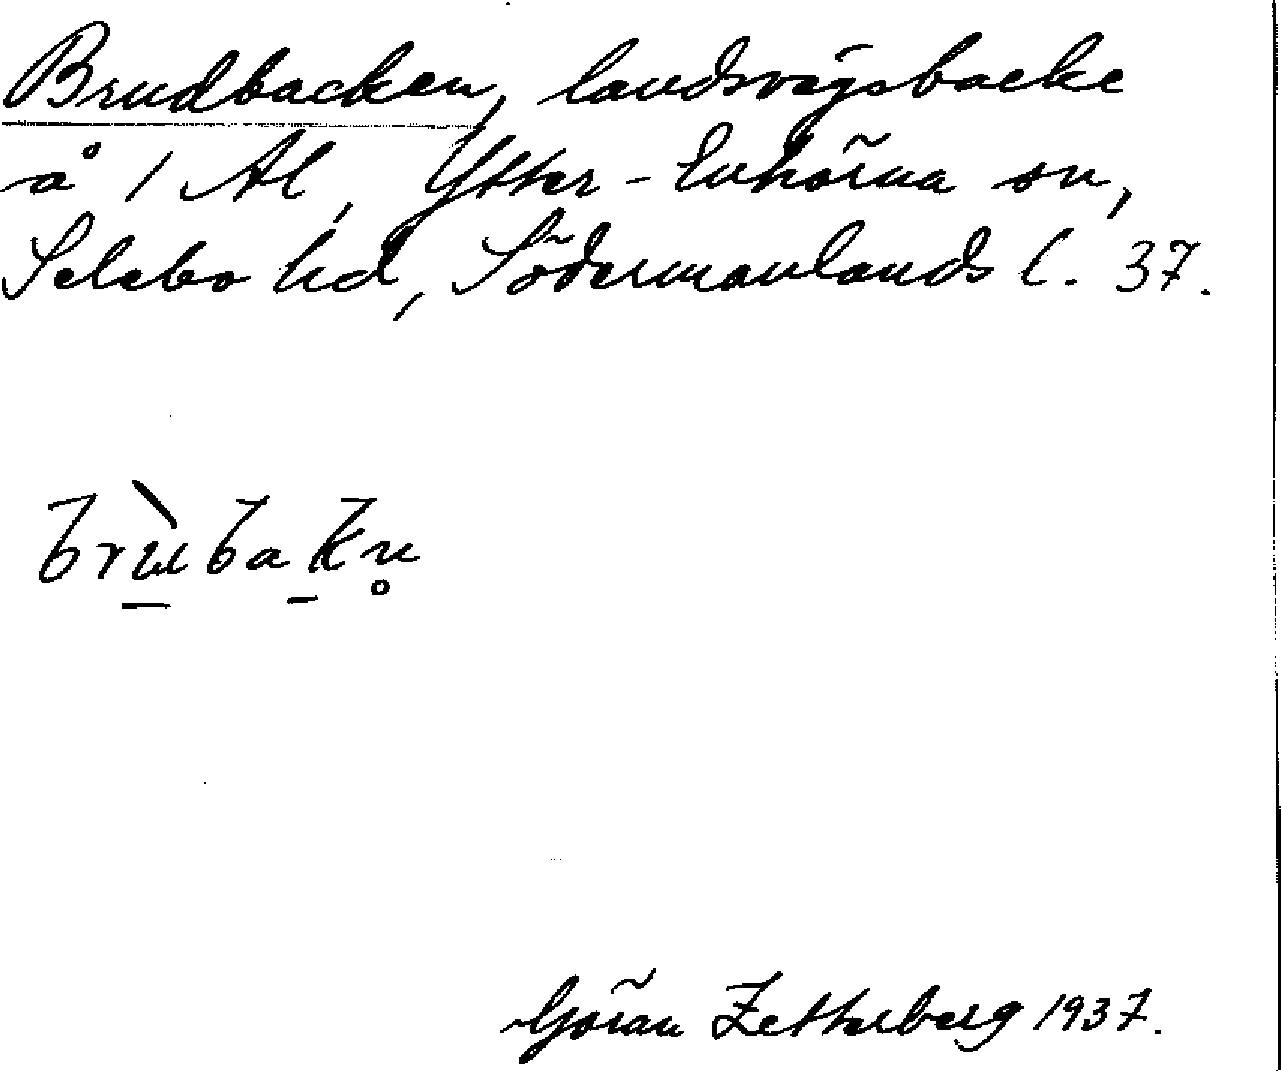 Brudbacken, landsvägsbacke
å 1 Al, Ytter-Enhörna sn,
Selebo hd, Södermanlands l. 37.
brɯ̀bakn̥
Göran Zetterberg 1937.